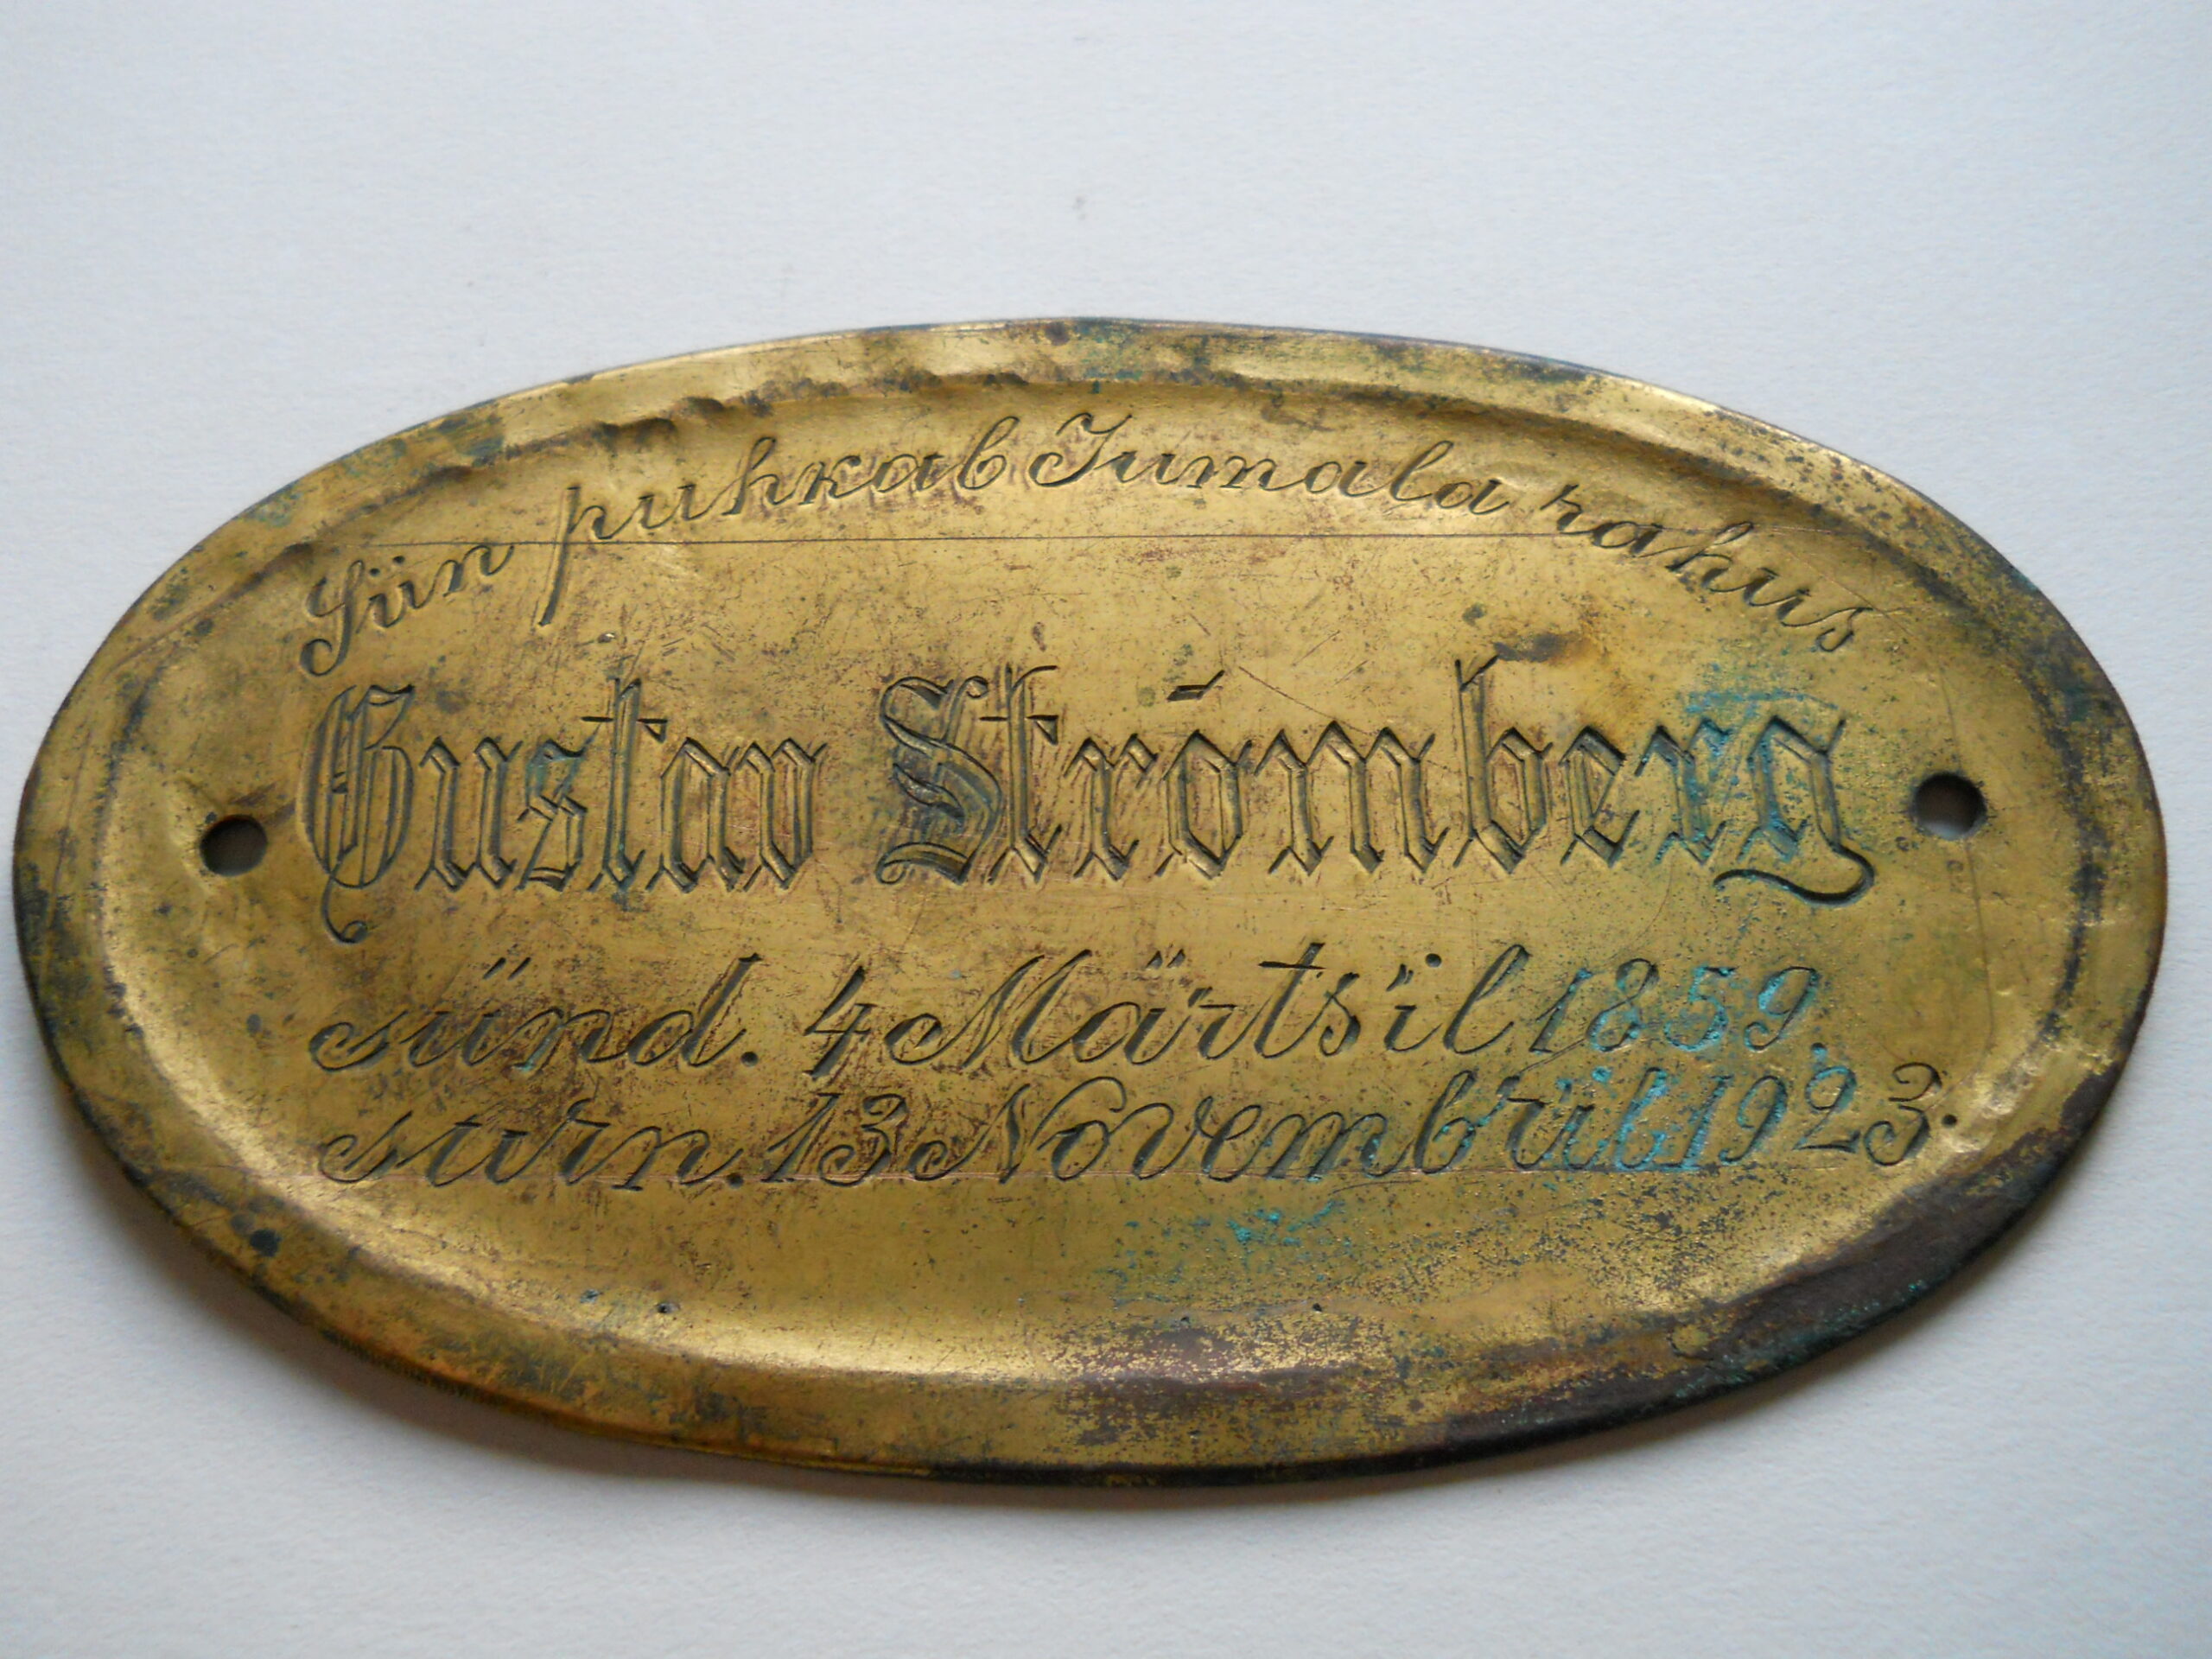 Siin puhkab Jumala rahus
Gustav Strömberg
sünd. 4 Märtsil 1859.
surn. 13 Novembril 1923.